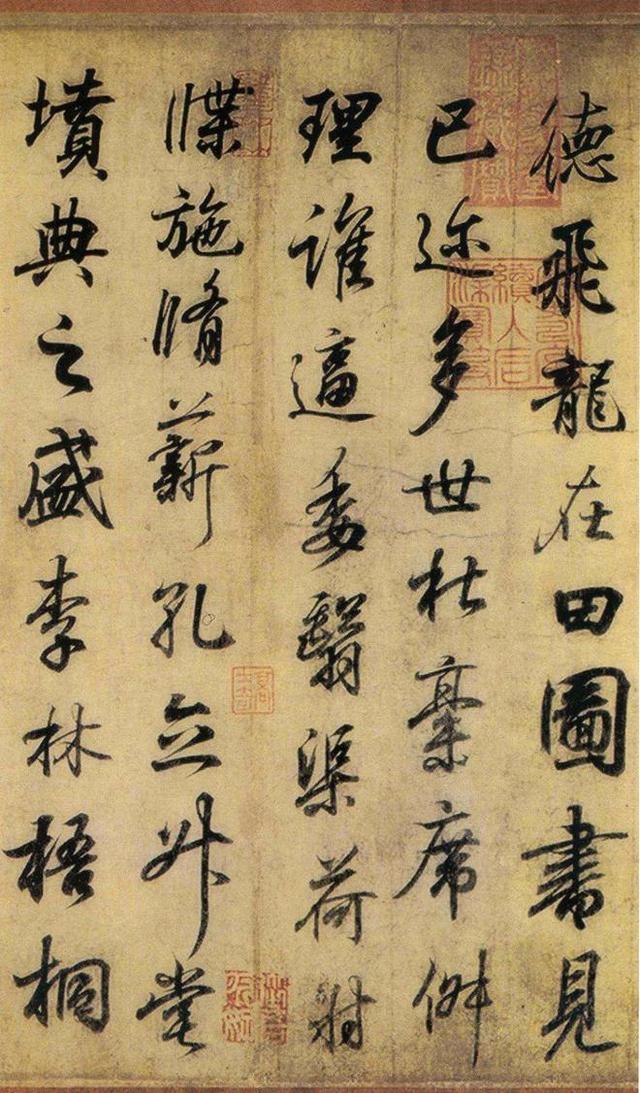 德飛龍在田圖書見
巳迩多世杜稾席
理誰逼委翳渠荷
牒施脩薪孔立升堂
墳典之盛李林梧桐